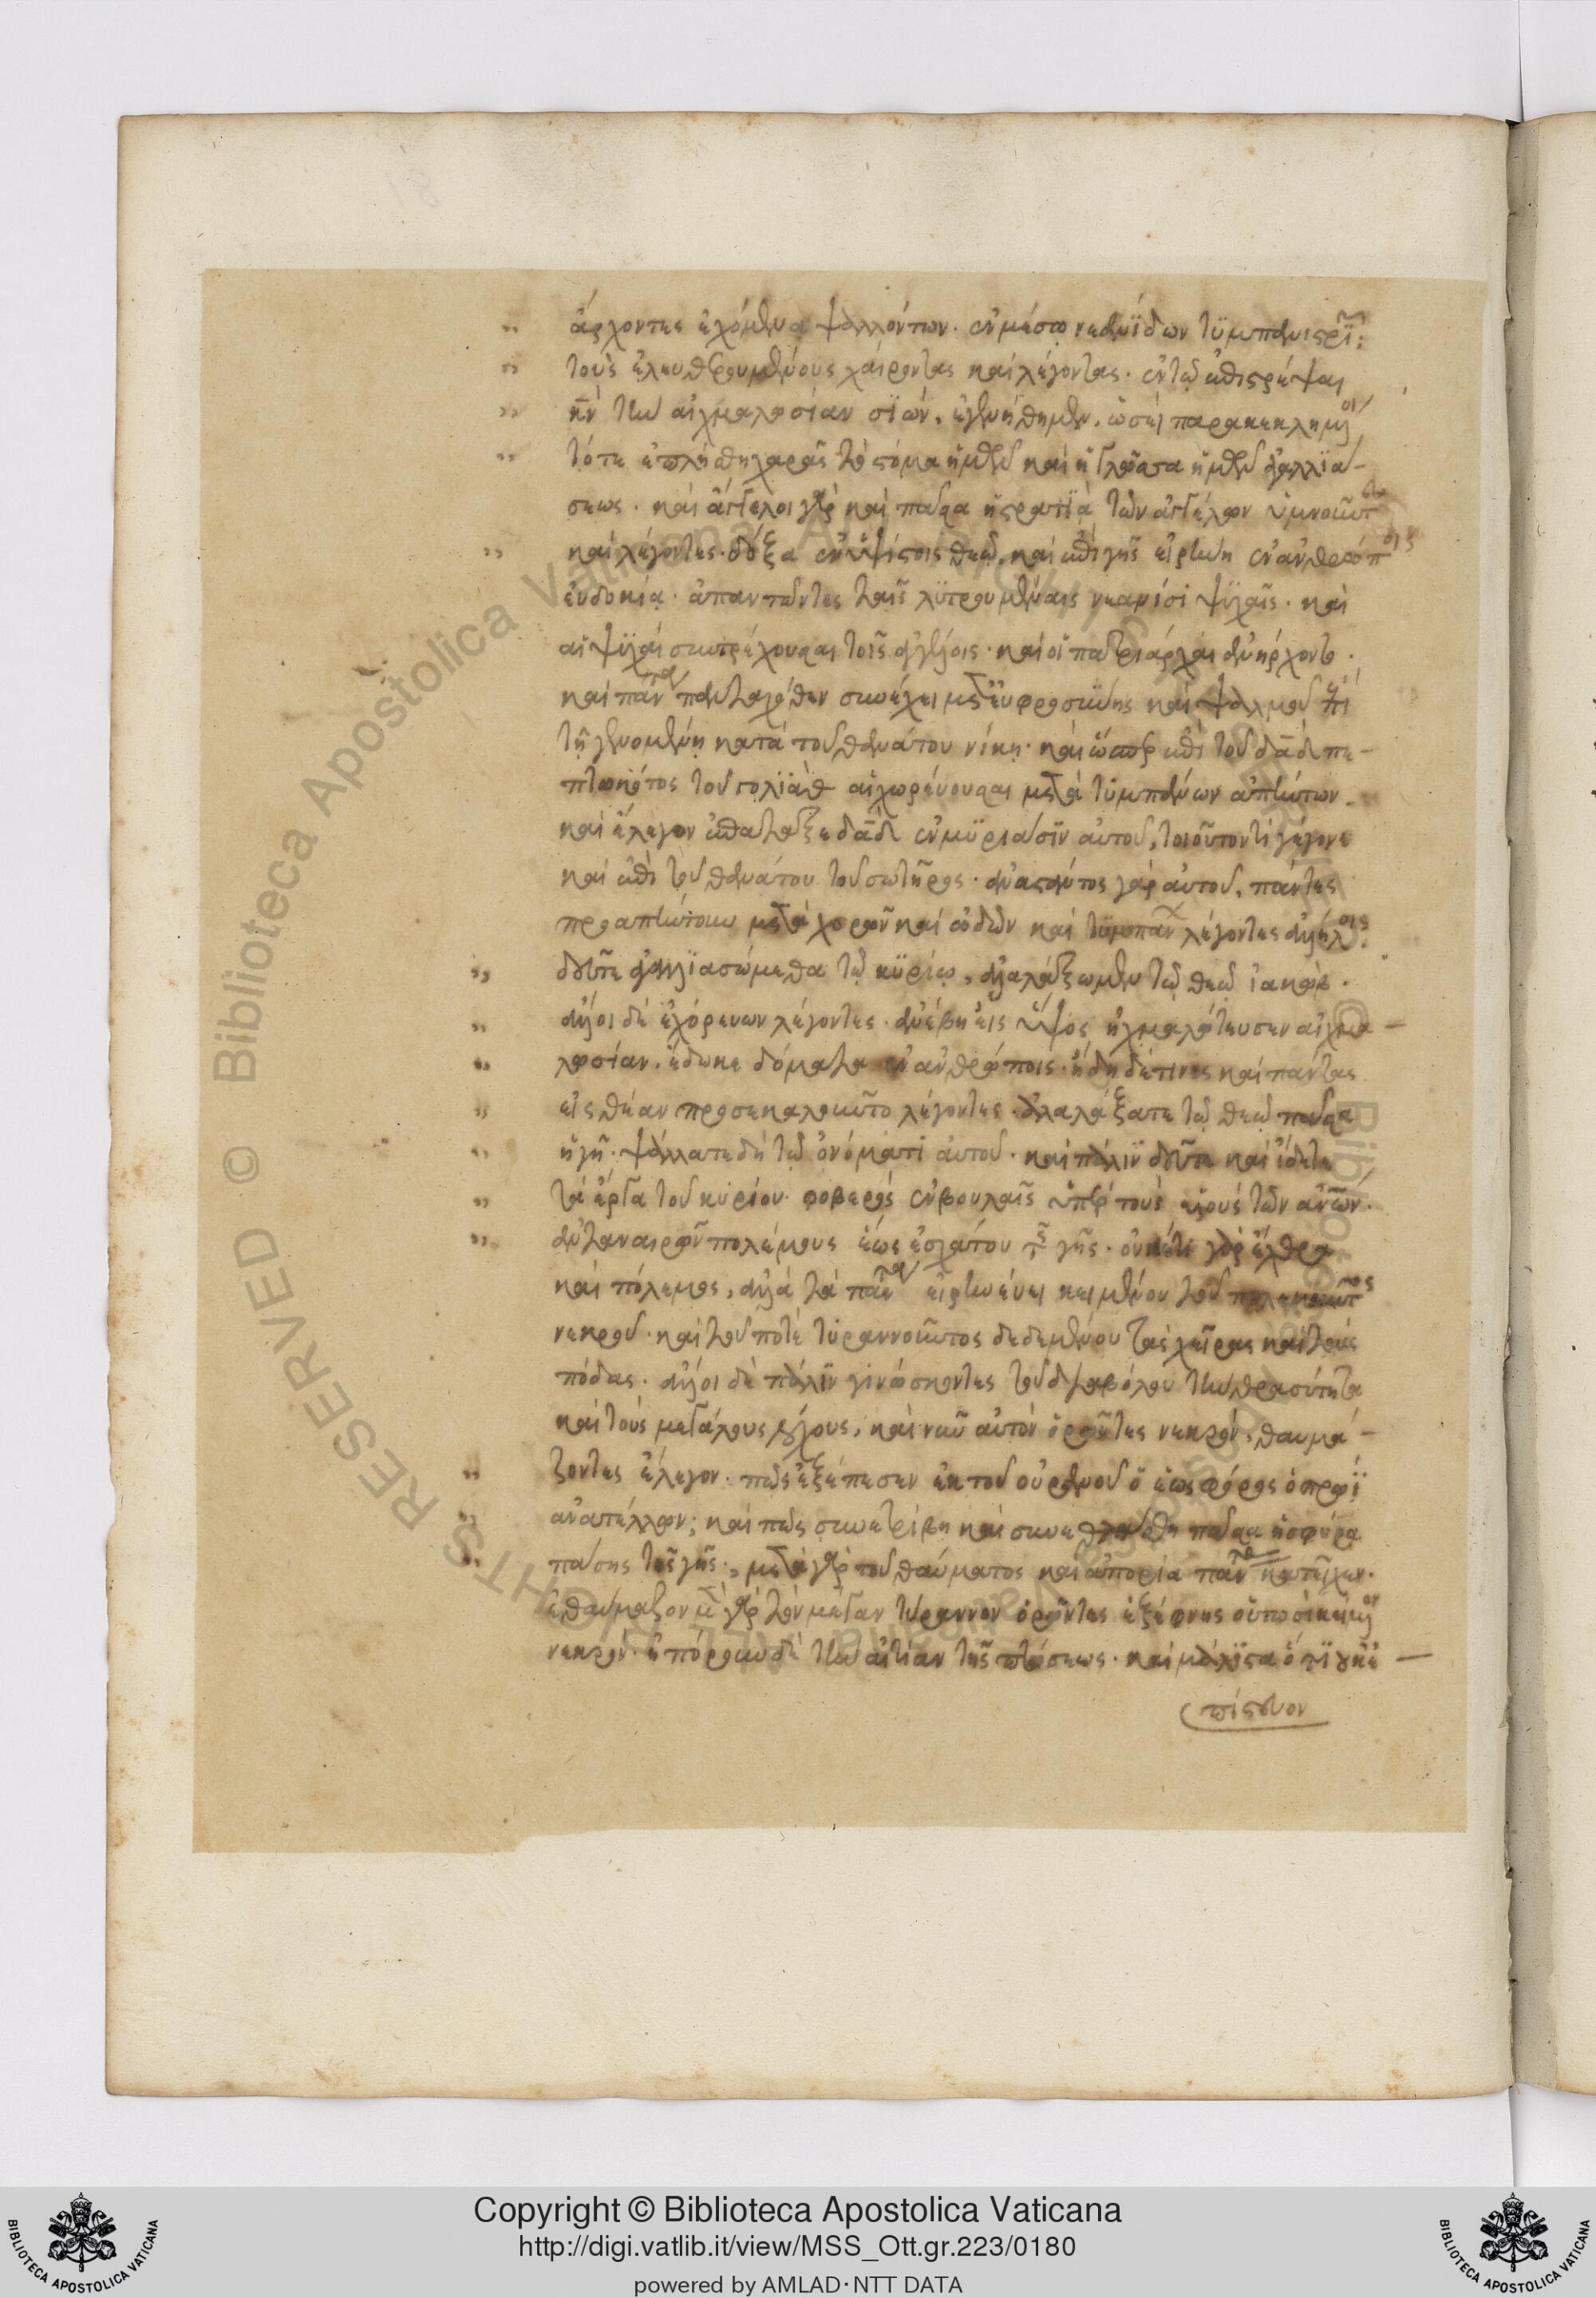 ἄρχοντες ἐχόμενα ψαλλόντων. ἐν μέσω νεανΐδων τϋμπανιστρϊ:
τοὺς ἐλευθερουμένους χαίροντας καὶ λέγοντας. ἐν τῷ ἐπιστρέψαι
κν τὴν αἰχμαλωσίαν σϊών, ἐγενήθημεν, ὡσεὶ παρακεκλημοι
τότε ἐπλήσθη χαρᾶς τὸ στόμα ἡμῶν καὶ ἡ γλῶσσα ἡμῶν ἀγαλλϊά-
σεως. καὶ ἄγγελοι γὰρ καὶ πᾶσα ἡ στρατϊὰ τῶν ἀγγέλων ὑμνοῦντ
καὶ λέγοντες. δόξα ἐν ὑψίστοις θεῶ, καὶ ἐπὶ γῆς εἰρήνη ἐν ἀνθρώποις
εὐδοκία. ἀπαντῶντες ταῖς λϋτρουμέναις νεανίσι ψϋχαῖς. καὶ
αἱ ψϋχαὶ συντρέχουσαι τοῖς ἀγγέλοις. καὶ οἱ πατριάρχαι ἀνήρχοντο.
καὶ πάντα πανταχόθεν συνέχει μετ εὐφροσύνης καὶ ψαλμοῦ ἐπὶ
τῆ γενομένη κατὰ τοῦ θανάτου νίκη. καὶ ὥσπερ ἐπὶ τοῦ δαδ πε-
πτωκότος τοῦ γολϊὰθ αἱ χωρεύουσαι μετὰ τϋμπάνων ἀπήντων.
καὶ ἔλεγον ἐπάταξε δαδ ἐν μϋριάσϊν αὐτοῦ, τοιοῦτον τὶ γέγονε
καὶ ἐπὶ τοῦ θανάτου τοῦ σωτῆρος. ἀναστάντος γὰρ αὐτοῦ, πάντες
προαπήντουν μετὰ χορῶν καὶ ὠδῶν καὶ τϋμπάν λέγοντες ἀλλήλοις:
δεῦτε ἀγαλλϊασώμεθα τῷ κϋρίω, ἀλαλάξωμεν τῷ θεῶ ἰακώβ.
ἄλλοι δὲ ἐχόρευων λέγοντες. ἀνέβη εἰς ὕψος ἠχμαλώτευσεν αἰχμα-
λωσίαν. ἔδωκε δόματα ἐν ἀνθρώποις. ἤδη δέ τινες καὶ πάντας
εἰς θέαν προσεκαλοῦντο λέγοντες. ἀλαλάξατε τῷ θεῶ πᾶσα
ἡ γῆ. ψάλλατε δὴ τῷ ὀνόματι αὐτοῦ. καὶ πάλϊν δεῦτε καὶ ἴδετε
τὰ ἔργα τοῦ κυρίου. φοβερὸς ἐν βουλαῖς ὑπὲρ τοὺς υἱοὺς τῶν ἀνῶν.
ἀνταναιρῶν πολέμους ἕως ἐσχάτου τῆς γῆς. οὐκέτι γὰρ ἔχθρα
καὶ πόλεμος, ἀλλὰ τὰ πάντα εἰρηνεύει κειμένου τοῦ πολεμοῦντος
νεκροῦ. καὶ τοῦ ποτὲ τϋραννοῦντος δεδεμένου τὰς χεῖρας καὶ τοὺς
πόδας. ἄλλοι δὲ πάλϊν γινώσκοντες τοῦ διαβόλου τὴν θρασύτητα
καὶ τοὺς μεγάλους λόχους, καὶ νῦν αὐτὸν ὁρῶντες νεκρὸν, θαυμά-
ζοντες ἔλεγον. πῶς ἐξέπεσεν ἐκ τοῦ οὐρανοῦ ὁ ἑωσφόρος ὁ πρωῒ
ἀνατέλλων; καὶ πῶς συνετρίβη καὶ συνεθλάσθη πᾶσα ἡ σφύρα
πάσης τῆς γῆς., μετὰ γὰρ τοῦ θαύματος καὶ ἀπορία πάντα κατεῖχεν.
ἐθαύμαζον μὲν γὰρ τὸν μέγαν τύραννον ὁρῶντες ἐξέφνης οὕτως
νεκρὸν. ἠπόρουν δὲ τὴν αἰτίαν τῆς πτώσεως. καὶ μάλϊστα ὅτϊ οὐκ ἐ-
πίστευον
Copyright © Biblioteca Apostolica Vaticana
http://digi.vatlib.it/view/MSS_Ott.gr.223/0180
powered by AMLAD·NTT DATA